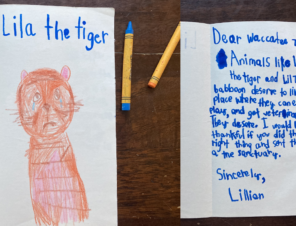 Lila the tiger
Dear Waccatee
Animals like
the tiger and
babboon deserve to
place where they can
and get
They desire. I would
thankful if you did th
right thing and sent th
a true sanctuary.
Sincerely,
Lillian